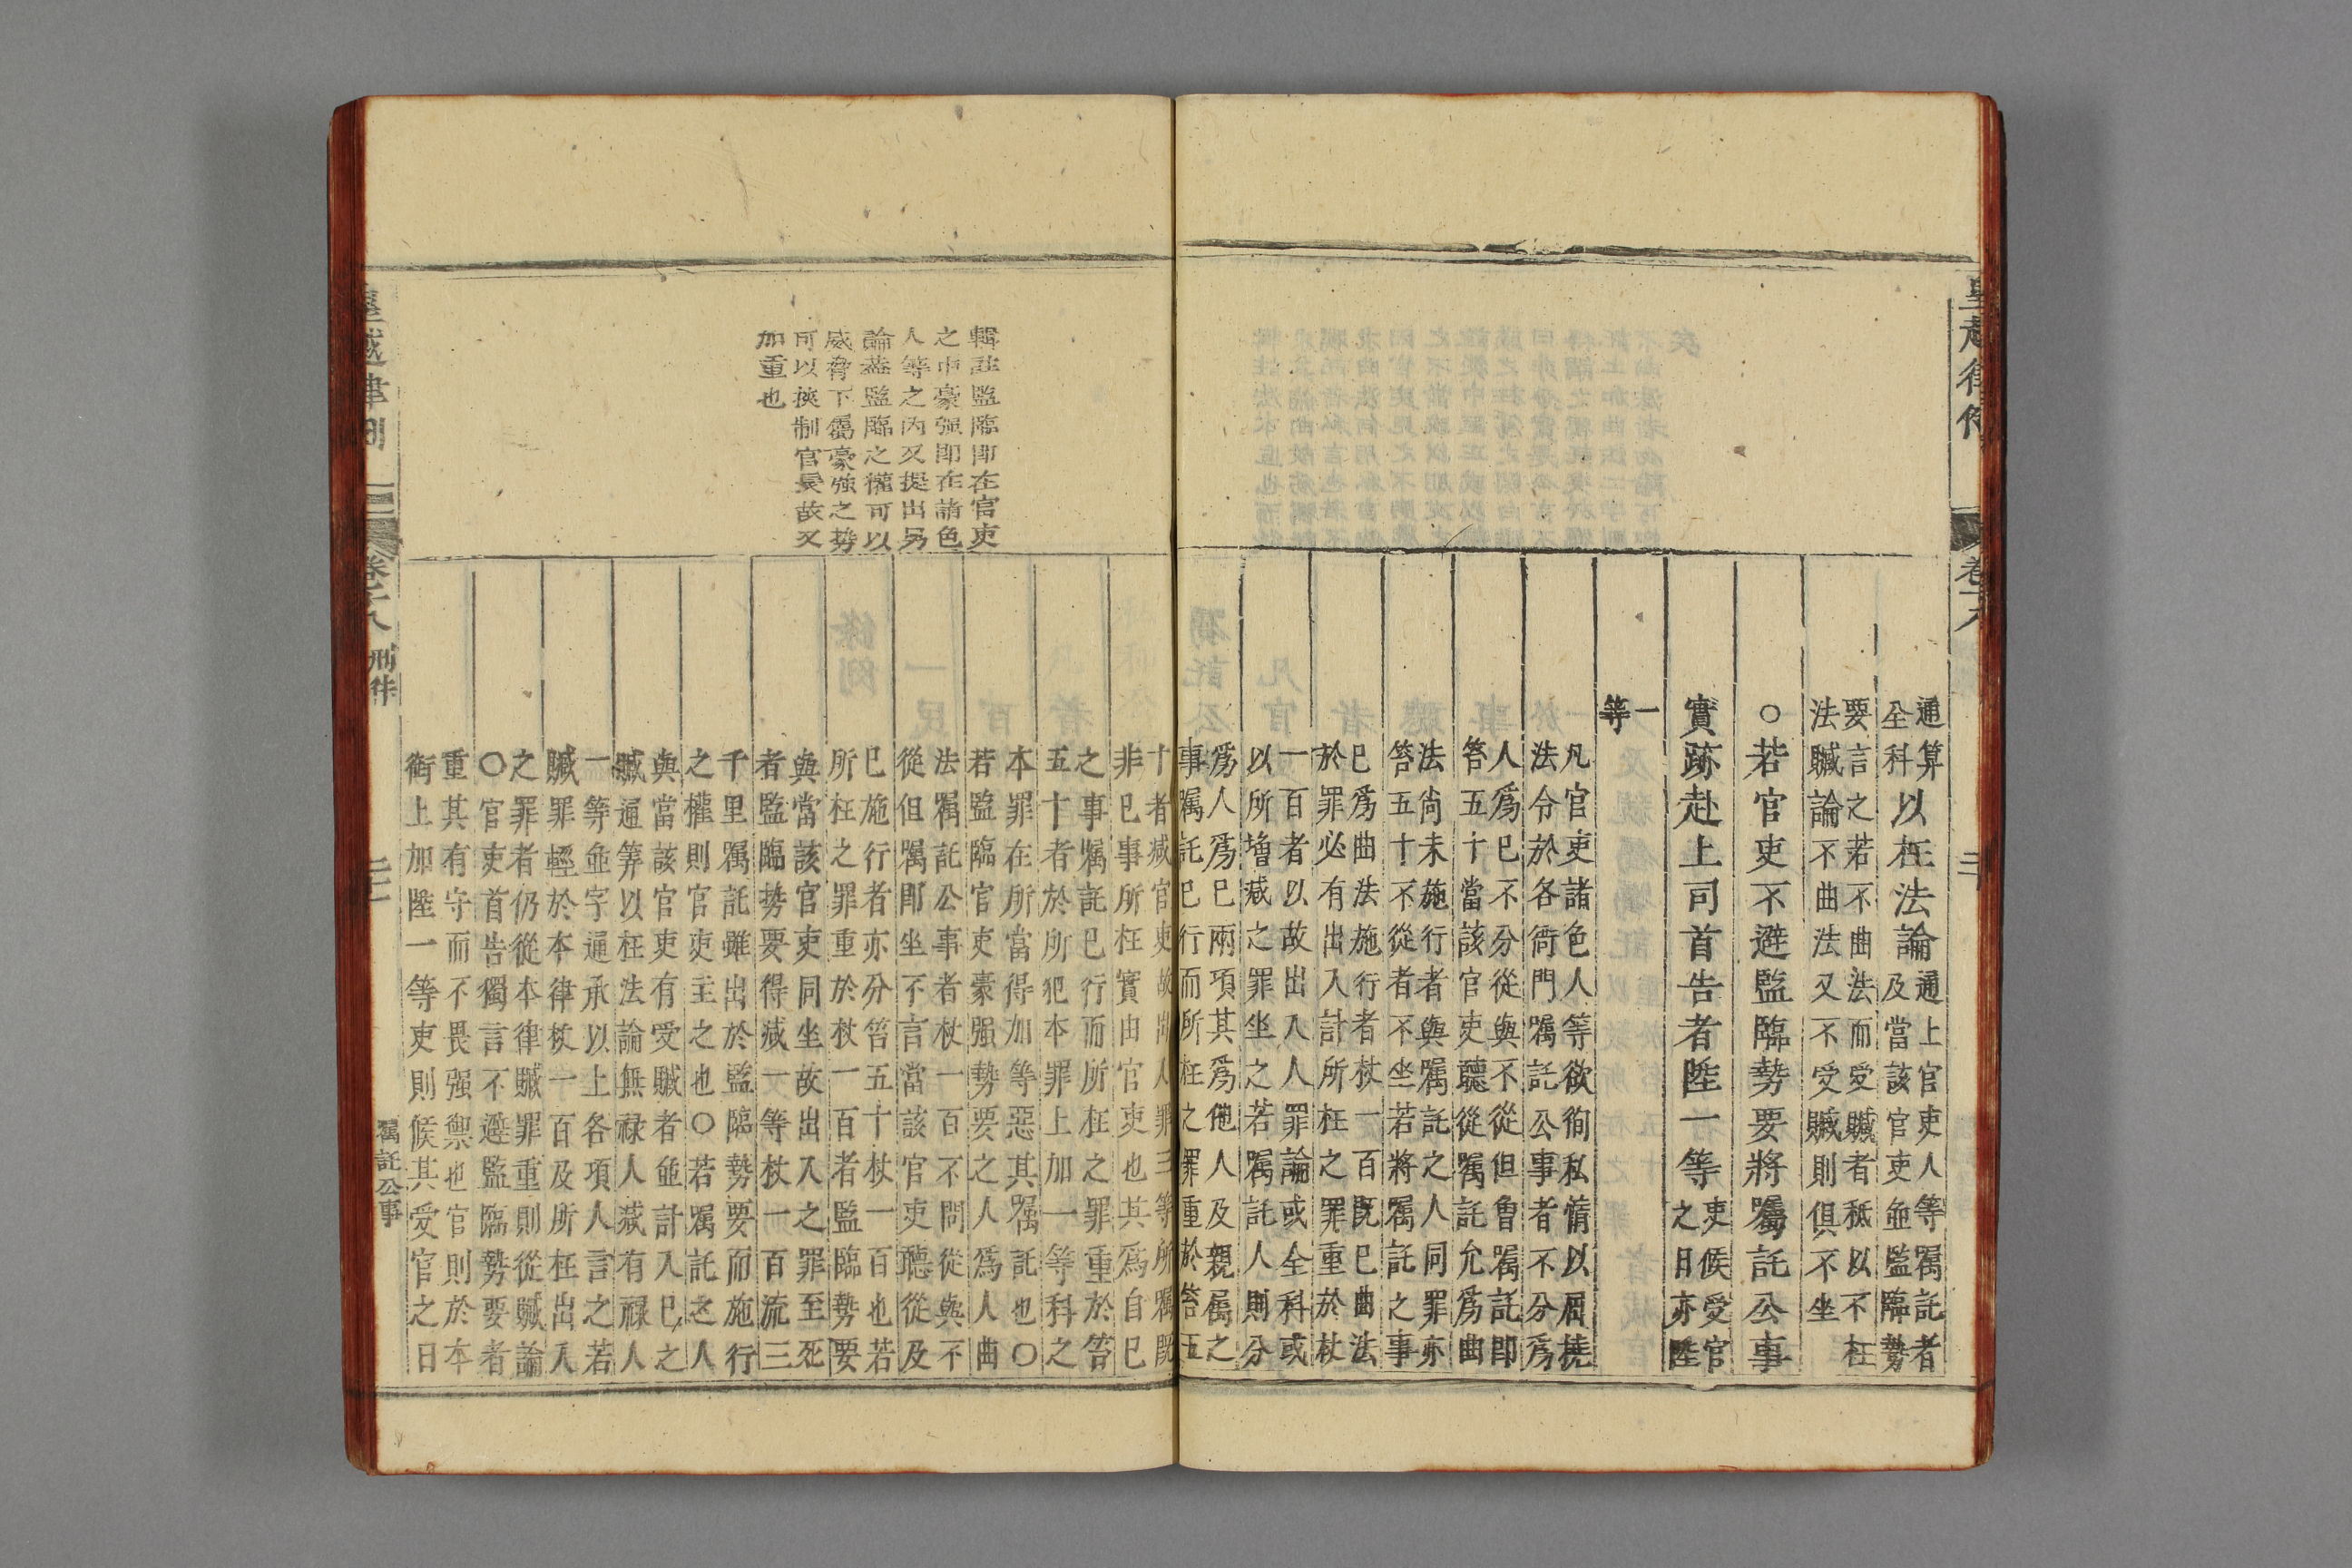 皇越律例
卷之十八
通算全科以枉法論通上官吏人等囑託者及當該官吏並監臨勢
要言之若不曲法而受贓者秪以不枉法贓論不曲法又不受贓則俱不坐
○若官吏不避監臨勢要將囑託公事
實跡赴上司首告者陞一等吏候受官之日亦陞
一等
凡官吏諸色人等欲徇私情以屈撓
法令於各衙門囑託公事者不分爲
人爲已不分從與不從但曾囑託即
笞五十當該官吏聽從囑託允爲曲
法尚未施行者與囑託之人同罪亦
笞五十不從者不坐若將囑託之事
已爲曲法施行者杖一百既已曲法
於罪必有出入計所枉之罪重於杖
一百者以故出入人罪論或全科或
以所增減之罪坐之若囑託人則分
爲人爲已兩項其爲他人及親屬之
事囑託已行而所枉之罪重於笞五
輯註監臨即在官吏
之中豪强即在諸色
人等之內又提出另
論葢監臨之權可以
威脅下屬豪強之勢
可以挾制官長故又
加重也
十者減官吏故出人罪三等所囑既
非已事所枉實由官吏也其爲自已
之事囑託已行而所枉之罪重於笞
五十者於所犯本罪上加一等科之
本罪在所當得加等惡其囑託也○
若監臨官吏豪强勢要之人爲人曲
法囑託公事者杖一百不問從與不
從但囑即坐不言當該官吏聽從及
已施行者亦分笞五十杖一百也若
所枉之罪重於杖一百者監臨勢要
與當該官吏同坐故出入之罪至死
者監臨勢要得減一等杖一百流三
千里囑託雖出於監臨勢要而施行
之權則官吏主之也○若囑託之人
與當該官吏有受贓者並計入已之
贓通筭以枉法論無祿人減有祿人
一等並字通承以上各項人言之若
贓罪輕於本律杖一百及所枉出入
之罪者仍從本律贓罪重則從贓論
○官吏首告獨言不避監臨勢要者
重其有守而不畏强禦也官則於本
衙上加陞一等吏則候其受官之日
皇越律例
卷之十八
刑律
囑託公事